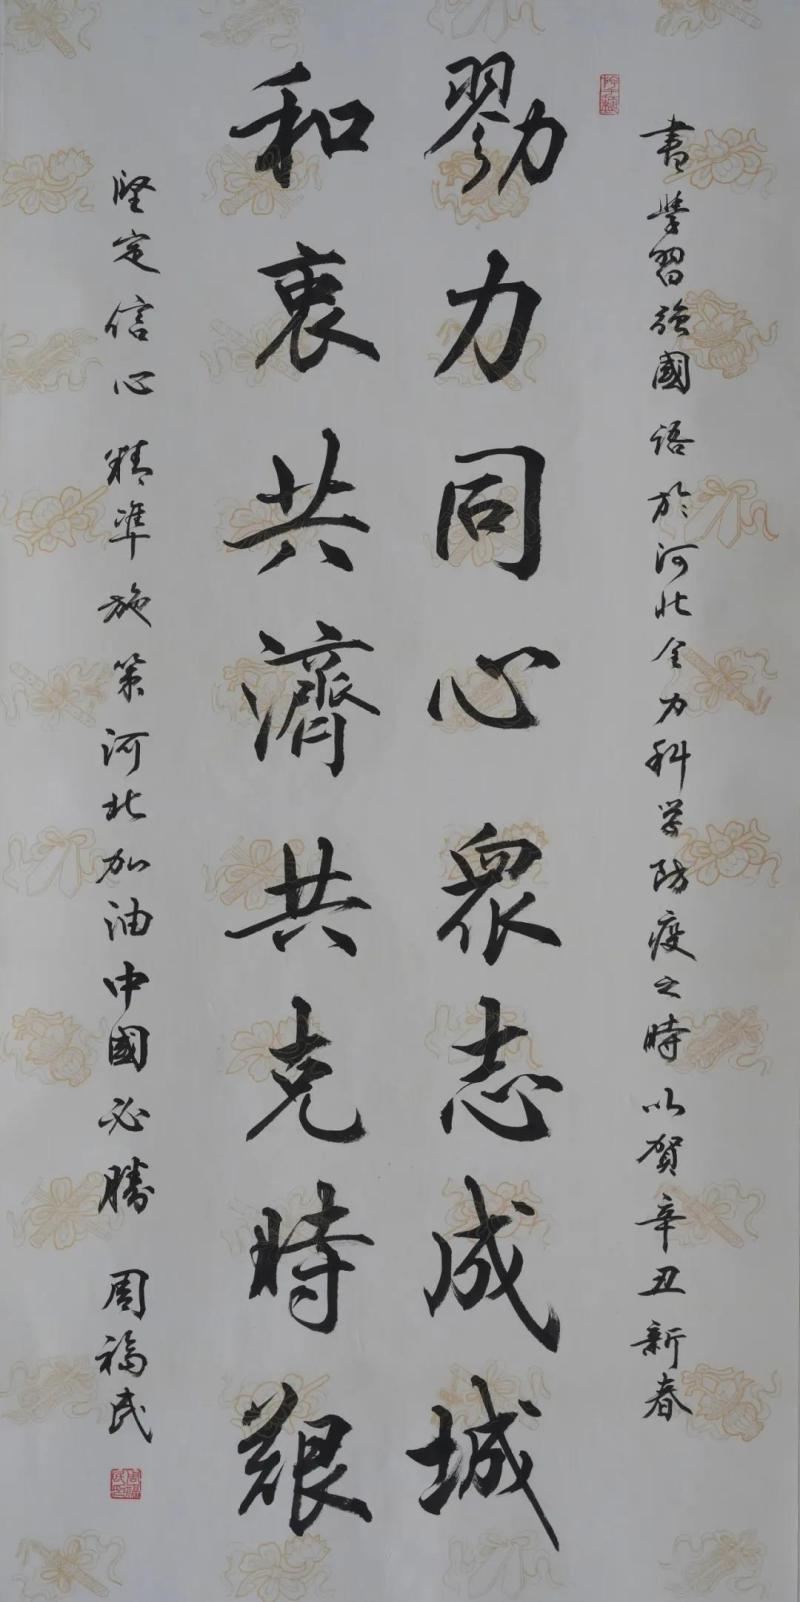 書學習強國語於河北全力科学防疫之時以賀辛丑新春
勠力同心眾志成城
和衷共濟共克時艱
堅定信心精準施策河北加油中國必勝 周福民